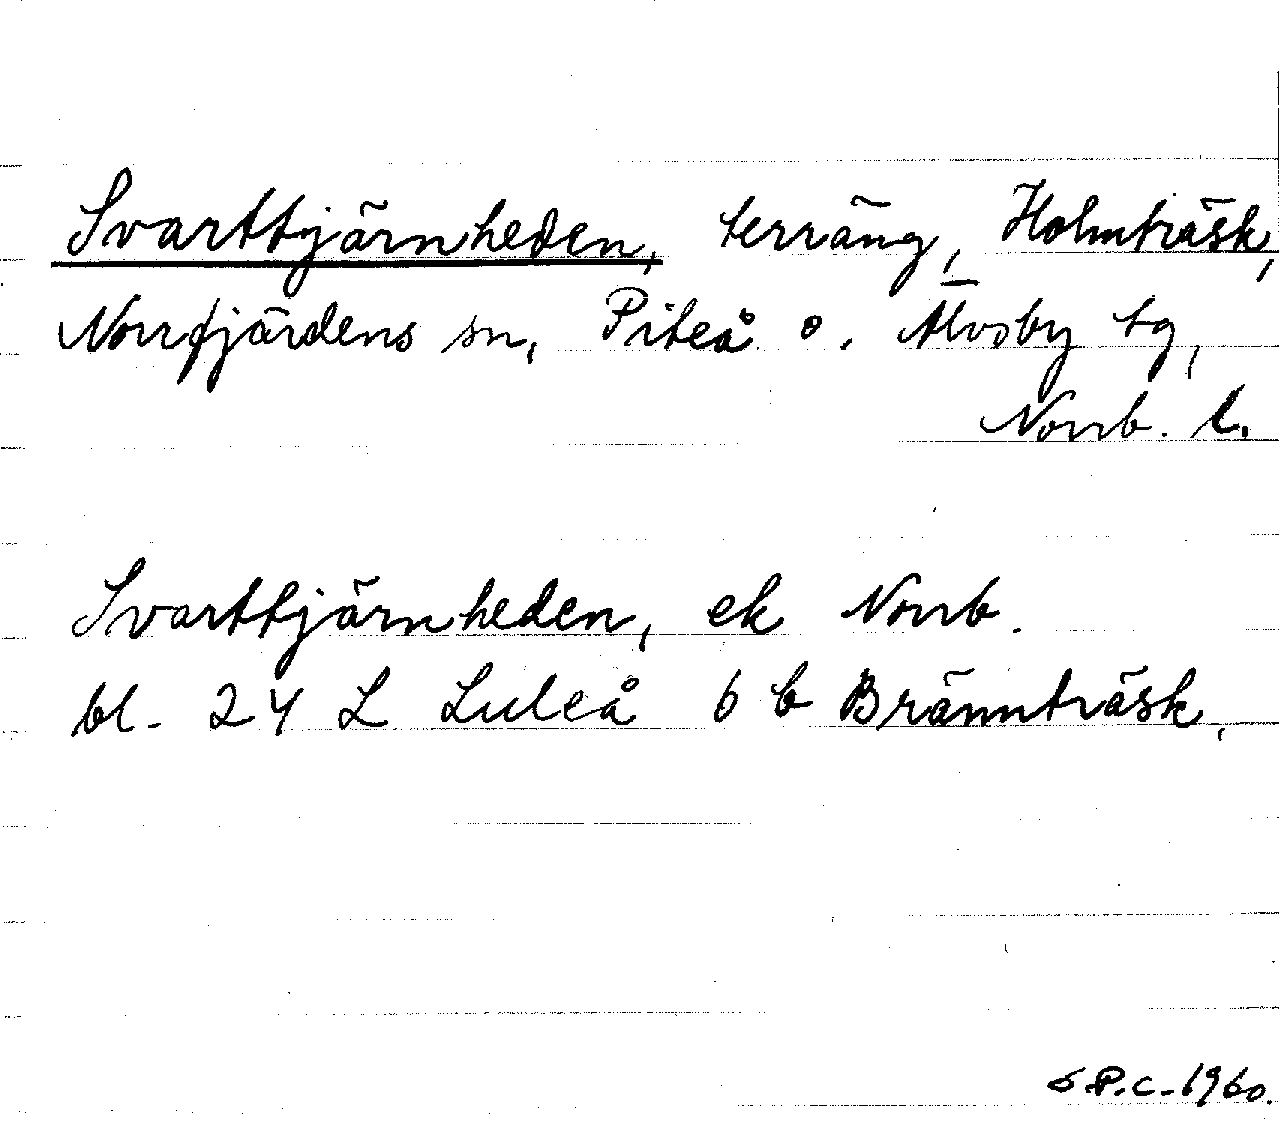 Svarttjärnheden, terräng, Holmträsk,
Norrfjärdens sn, Piteå o. Älvsby tg,
Norrb. l.
Svarttjärnheden, ek Norrb.
bl. 24 L Luleå 6 b Brännträsk.
S.P.C. 1960.